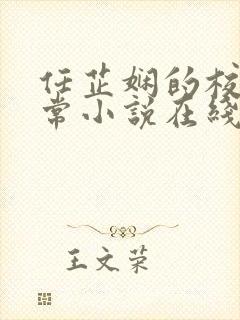 任芷娴的校
常小说在线
王文荣